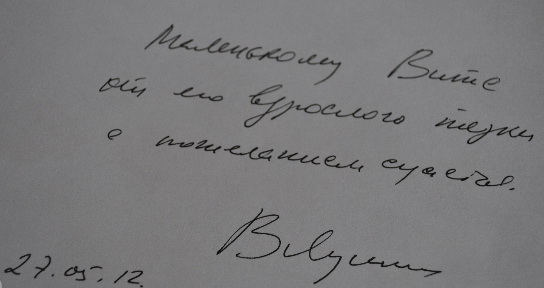 Маленькому Вите
от его взрослого тезки
с пожеланием счастья.
27.05.12.